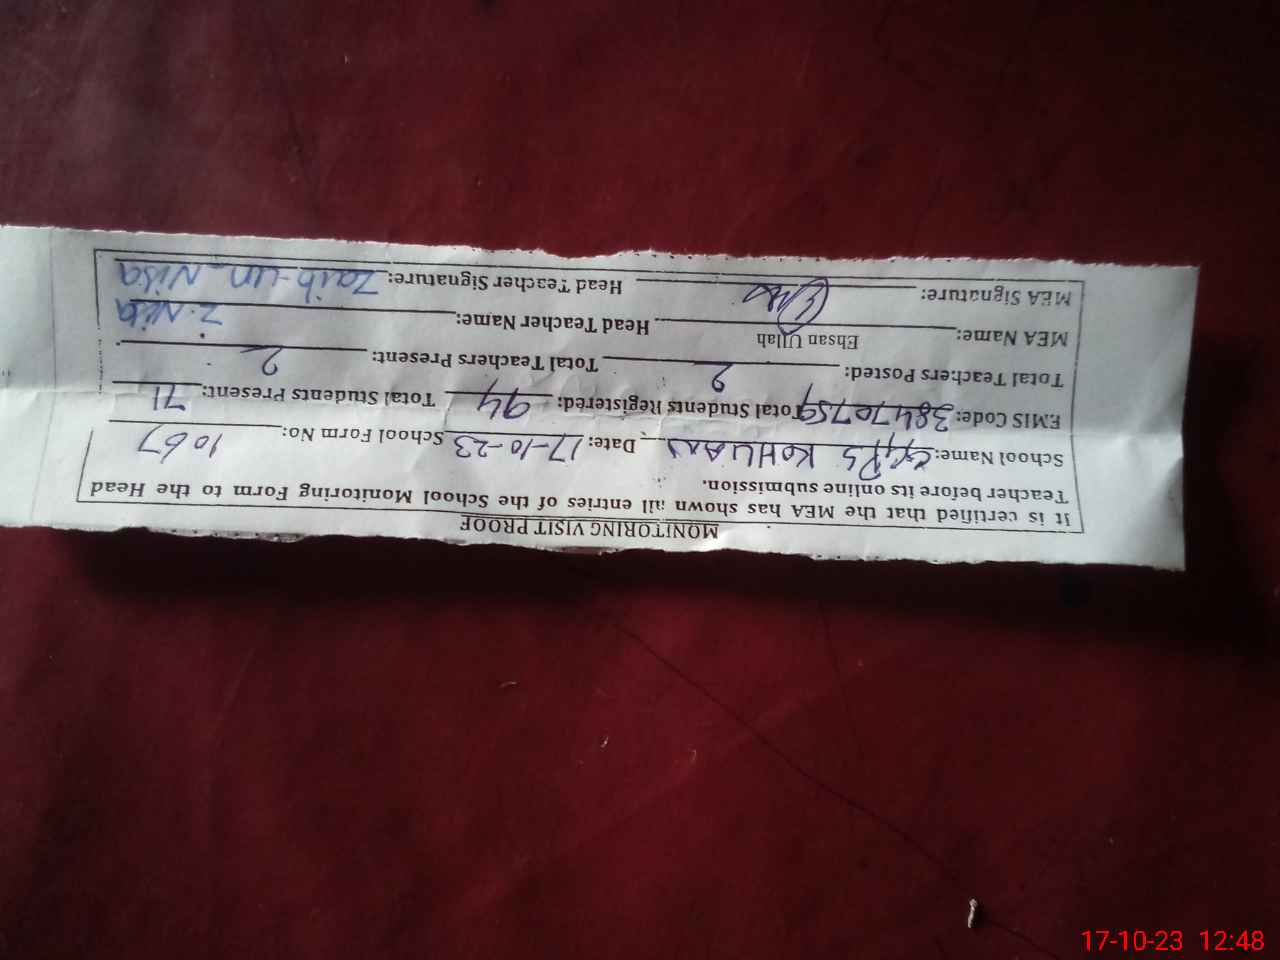 MONITORING VISIT PROOF
It is certified that the MEA has shown all entries of the School Monitoring Form to the Head
Teacher before its online submission.
School Name: GGPS KOHLIAN Date: 17-10-23 School Form No: 1067
EMIS Code: 38470759 Total Students Registered: 94 Total Students Present: 71
Total Teachers Posted: 2 Total Teachers Present: 2
MEA Name: Ehsan Ullah Head Teacher Name: Z. Nisa
MEA Signature: Head Teacher Signature: Zaib-un-Nisa
17-10-23 12:48